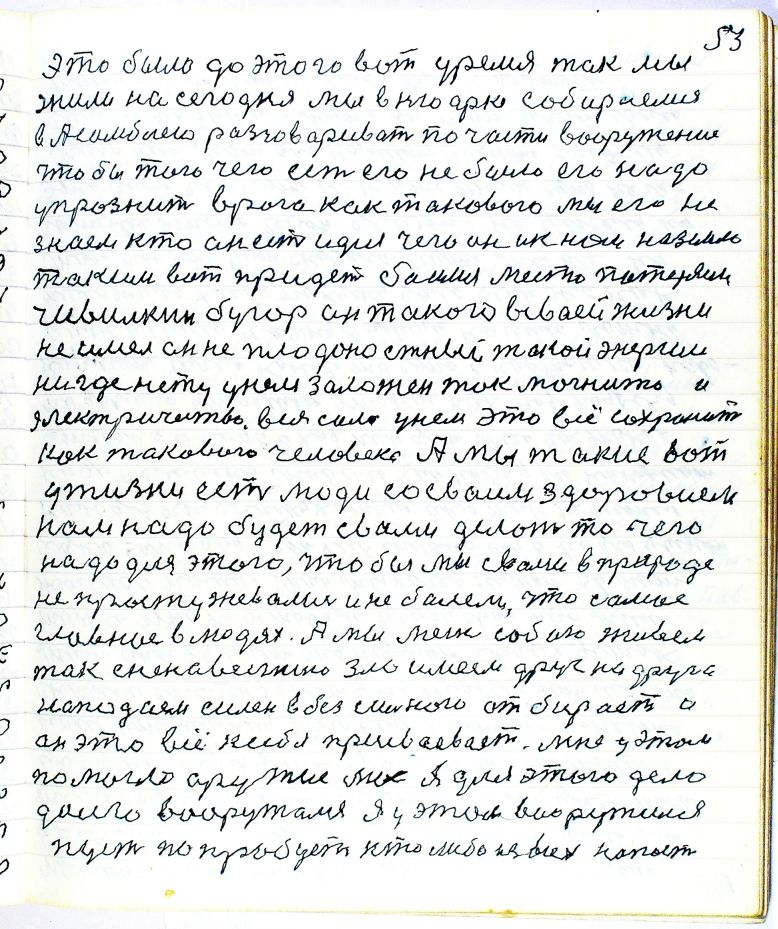 53
Это было до этого вот уремя так мы
жили на сегодня мы в нюорке собираемся
в Асамблею разговариват по части вооружение
чтобы того чего ест его не было его надо
упрознит врага как такового мы его не
знаем кто он ест идля чего он ик нам на землю
таким вот придет баимя место потеряим
чивилкин бугор он такого вваей жизни
не имел он не плодоностный такой энергии
нигде нету унем заложен ток могнито и
электричество. вся сила унем это всё сохранит
как такового человека А мы такие вот
ужизни ест люди сосваим здоровием
нам надо будет свами делат то чего
надо для этого, что бы мы свами в природе
не простужевалис и не балели, что самое
главное в людях. А мы меж собою живем
так сненавестию зло имеем друг на друга
нападаем силен вбез силного отбирает и
он это всё ксебя присваевает. мне уэтом
помогло аружие мое Я для этого дело
долго вооружался я у этом вооружился
пуст попробует кто либо из вас напаст